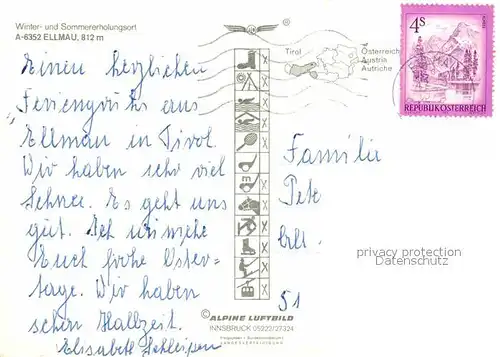 Winter- und Sommererholungsort
A-6352 ELLMAU, 812 m
Einen herzlichen
Feriengruß aus
Ellmau in Tirol.
Wir haben sehr viel
Schnee. Es geht uns
gut. Ich wünsche
Euch frohe Oster-
tage. Wir haben
schon Halbzeit.
Elisabeth
Tirol
Österreich
Austria
Autriche
4 S
REPUBLIK ÖSTERREICH
Familie
Pete
51
privacy protection
Datenschutz
© ALPINE LUFTBILD
INNSBRUCK 05222/27324